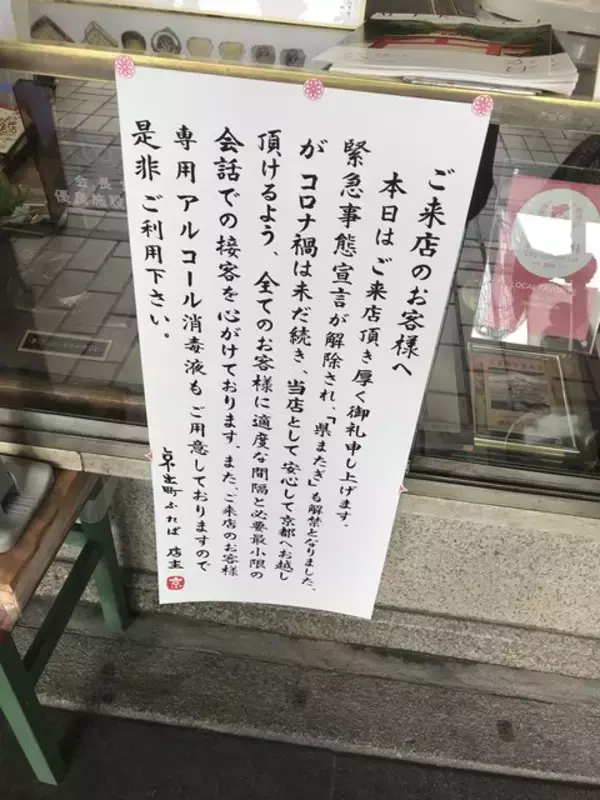 ご来店のお客様へ
本日はご来店頂き厚く御礼申し上げます。
緊急事態宣言が解除され、「県またぎ」も解禁となりました、
が コロナ禍は未だ続き、当店として安心して京都へお越し
頂けるよう、全てのお客様に適度な間隔と必要最小限の
会話での接客を心がけております。また、ご来店のお客様
専用アルコール消毒液もご用意しておりますので
是非ご利用下さい。
出町ふたば 店主
京
LOCAL FAVORITE